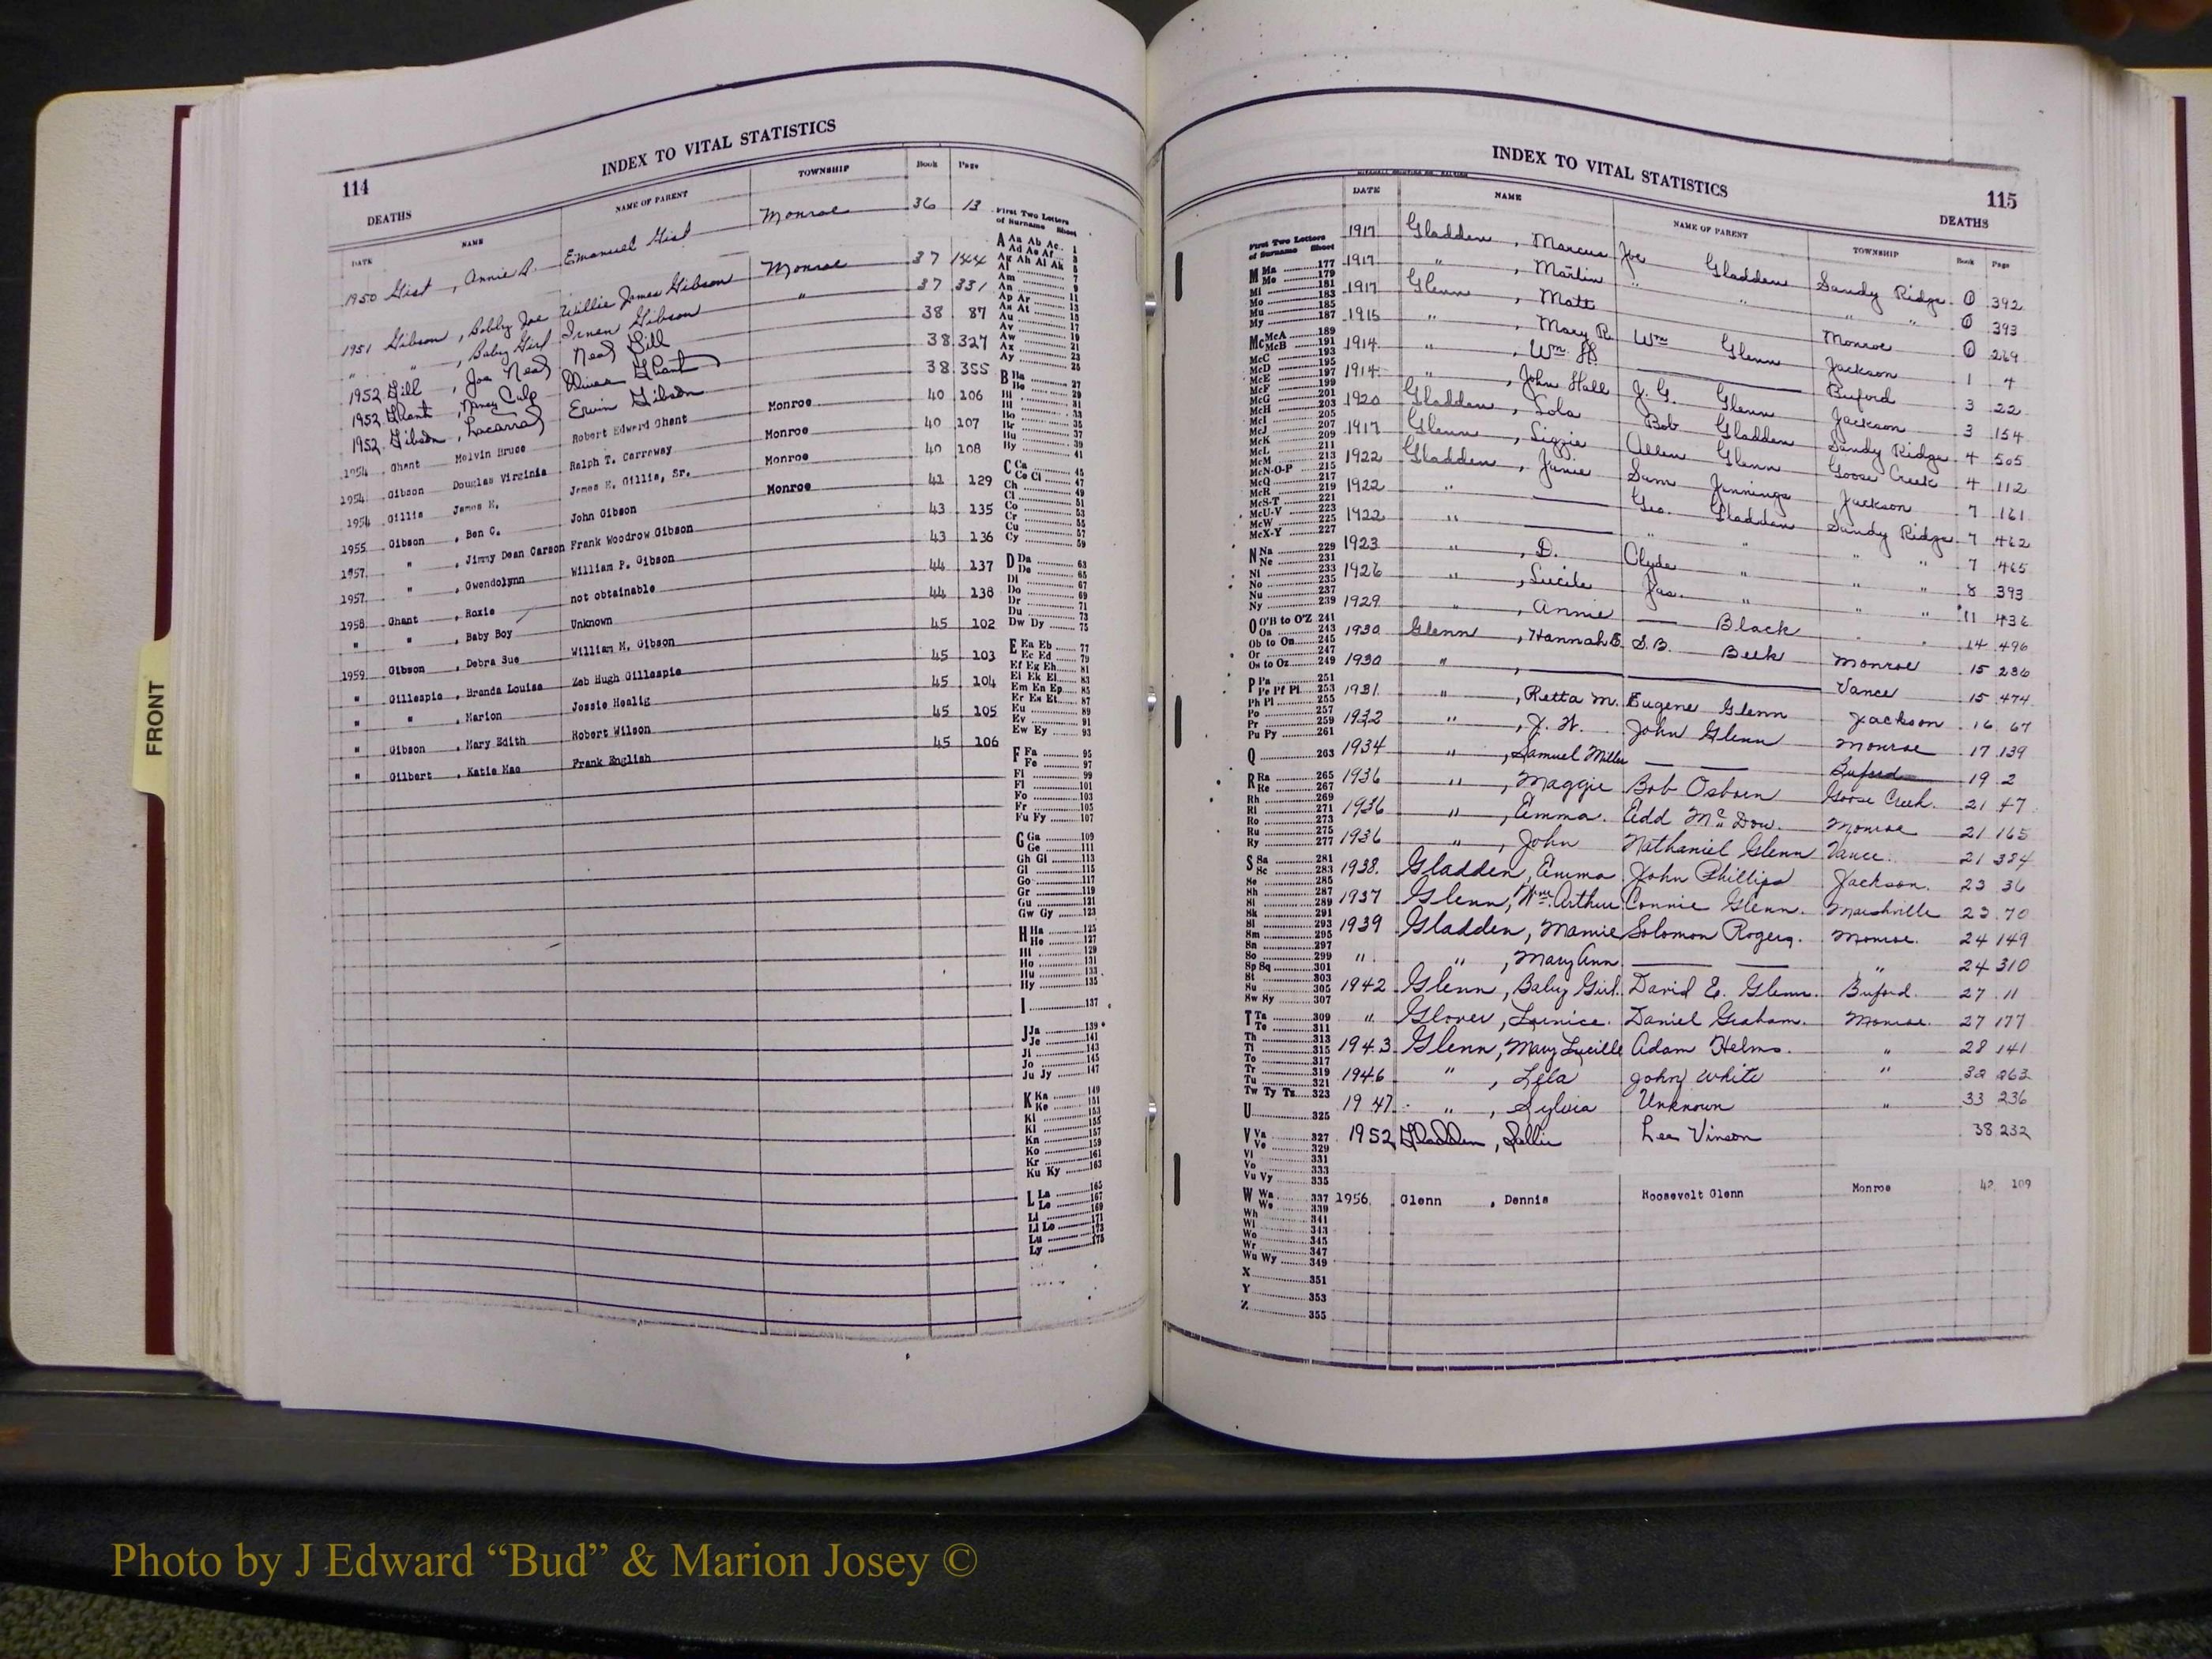 114
INDEX TO VITAL STATISTICS
DEATHS
DATE NAME NAME OF PARENT TOWNSHIP Book Page
1950 Gist , Annie Emanuel Gist Monroe 36 13
1951 Gibson , Bobby Joe Willie James Gibson Monroe 37 144
" " , Baby Girl Gibson " 37 331
1952 Gill , Joe Neal Neal Gill 38 87
1952 Ghant , Nancy Culp Ghant 38 327
1952 Gibson , Ervin Gibson 38 355
1954 Ghant Melvin Bruce Robert Edward Ghant Monroe 40 106
1954 Gibson Douglas Virginia Ralph T. Carroway Monroe 40 107
1954 Gillis James E. James E. Gillis, Sr. Monroe 40 108
1955 Gibson , Ben C. John Gibson Monroe 41 129
1957 " , Jimmy Dean Carson Frank Woodrow Gibson 43 135
1957 " , Gwendolynn William P. Gibson 43 136
1958 Ghant , Roxie not obtainable 44 137
" " , Baby Boy Unknown 44 138
1959 Gibson , Debra Sue William M. Gibson 45 102
" Gillespie , Brenda Louise Zeb Hugh Gillespie 45 103
" " , Marion Jossie Heglig 45 104
" Gibson , Mary Edith Robert Wilson 45 105
" Gilbert , Katie Mae Frank English 45 106
First Two Letters
of Surname Sheet
A Aa Ab Ac 1
B Ba 27
C Ca 45
Ce Ci 47
Ch 49
Cl 51
Co 53
Cr 55
Cu 57
Cy 59
D Da 63
De 65
Di 67
Do 69
Dr 71
Du 73
Dw Dy 75
E Ea Eb 77
Ec Ed 79
Ef Eg Eh 81
Ei Ek El 83
Em En Ep 85
Er Es Et 87
Eu 89
Ev 91
Ew Ey 93
F Fa 95
Fe 97
Fi 99
Fl 101
Fo 103
Fr 105
Fu Fy 107
G Ga 109
Ge 111
Gh Gi 113
Gl 115
Go 117
Gr 119
Gu 121
Gw Gy 123
H Ha 125
He 127
Hi 129
Ho 131
Hu 133
Hy 135
I 137
J Ja 139
Je 141
Ji 143
Jo 145
Ju Jy 147
K Ka 149
Ke 151
Ki 153
Kl 155
Kn 157
Ko 159
Kr 161
Ku Ky 163
L La 165
Le 167
Li 169
Ll Lo 171
Lu 173
Ly 175
INDEX TO VITAL STATISTICS
115
DEATHS
DATE NAME NAME OF PARENT TOWNSHIP Book Page
1917 Gladden , Marcus Joe Gladden Sandy Ridge 0 392
1917 " , Martin " " " " 0 393
1917 Glenn , Matt Monroe 0 269
1915 " , Mary R. Wm Glenn Jackson 1 4
1914 " , Wm. Buford 3 22
1914 " , John Hall J. G. Glenn Jackson 3 154
1920 Gladden , Lola Bob Gladden Sandy Ridge 4 505
1917 Glenn , Lizzie Allen Glenn Goose Creek 4 112
1922 Gladden , Janie Sam Jennings Jackson 7 161
1922 " Geo. Gladden Sandy Ridge 7 462
1922 " " " " " 7 465
1923 " , D. Clyde " " " 8 393
1926 " , Lucile Jas. " " " 11 436
1929 " , Annie Black 14 496
1930 Glenn , Hannah E. S. B. Belk Monroe 15 236
1930 " , Vance 15 474
1931 " , Retta M. Eugene Glenn Jackson 16 67
1932 " , John Glenn Monroe 17 139
1934 " , Samuel Miller Buford 19 2
1936 " , Maggie Bob Osborn Goose Creek 21 47
1936 " , Emma. Edd McDow. Monroe 21 165
1936 " , John Nathaniel Glenn Vance 21 384
1938. Gladden, Emma John Phillips Jackson. 23 36
1937 Glenn, Wm. Arthur Connie Glenn. Marshville 23 70
1939 Gladden, Mamie Solomon Rogers. Monroe. 24 149
" " , Mary Ann " 24 310
1942 Glenn, Baby Girl. David E. Glenn. Buford. 27 11
" Glover, Daniel Graham. Monroe. 27 177
1943 Glenn, Mary Lucille Adam Helms. " 28 141
1946 " , Lela John White " 32 263
1947 " , Sylvia Unknown " 33 236
1952 Gladden, Sallie Lee Vinson 38 232
1956 Glenn , Dennis Roosevelt Glenn Monroe 42 109
First Two Letters
of Surname Sheet
M Ma 177
Me 179
Mi 181
Mo 183
Mu 185
My 187
Mc McA 189
McB 191
McC 193
McD 195
McE 197
McF 199
McG 201
McH 203
McI 205
McJ 207
McK 209
McL 211
McM 213
McN-O-P 215
McQ 217
McR 219
McS-T 221
McU-V 223
McW 225
McX-Y 227
N Na 229
Ne 231
Ni 233
No 235
Nu 237
Ny 239
O O'B to O'Z 241
Oa 243
Ob to On 245
Or 247
Os to Oz 249
P Pa 251
Pe Pf Pi 253
Ph Pl 255
Po 257
Pr 259
Pu Py 261
Q 263
R Ra 265
Re 267
Rh 269
Ri 271
Ro 273
Ru 275
Ry 277
S Sa 281
Sc 283
Se 285
Sh 287
Si 289
Sk 291
Sl 293
Sm 295
Sn 297
So 299
Sp Sq 301
St 303
Su 305
Sw Sy 307
T Ta 309
Te 311
Th 313
Ti 315
To 317
Tr 319
Tu 321
Tw Ty Tz 323
U 325
V Va 327
Ve 329
Vi 331
Vo 333
Vu Vy 335
W Wa 337
We 339
Wh 341
Wi 343
Wo 345
Wr 347
Wu Wy 349
X 351
Y 353
Z 355
FRONT
Photo by J Edward “Bud” & Marion Josey ©